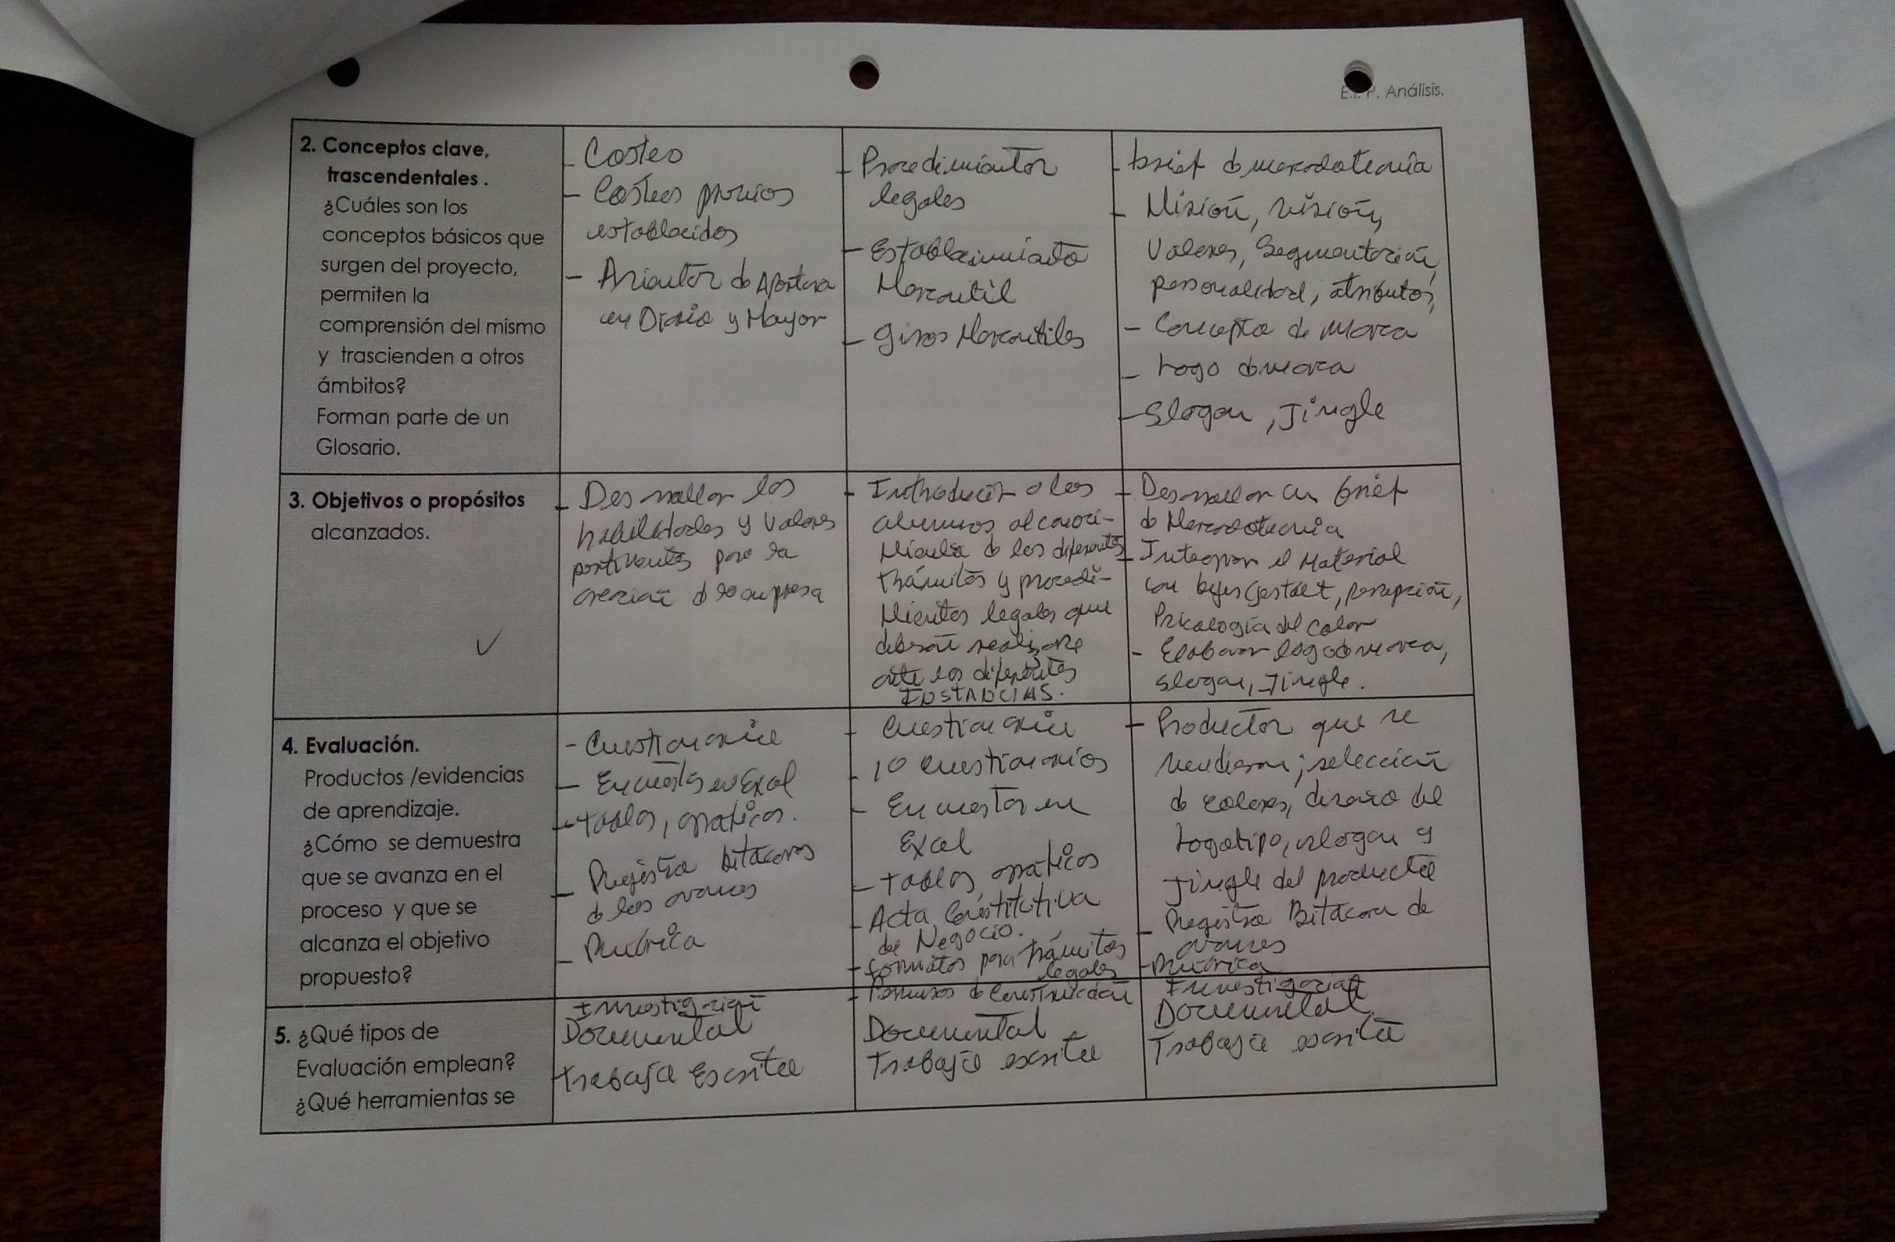 E.I. P. Análisis.
2. Conceptos clave,
trascendentales .
¿Cuáles son los
conceptos básicos que
surgen del proyecto,
permiten la
comprensión del mismo
y trascienden a otros
ámbitos?
Forman parte de un
Glosario.
- Costeo
- Costeos previos
establecidos
- Asientos de Apertura
en Diario y Mayor
- Procedimientos
legales
- Establecimiento
Mercantil
- giros Mercantiles
- brief de mercadotecnia
- Misión, visión,
Valores, Segmentación,
personalidad, atributos,
- Concepto de marca
- Logo de marca
- Slogan, Jingle
3. Objetivos o propósitos
alcanzados.
- Desarrollar las
habilidades y valores
pertinentes para la
creación de la empresa
- Introducir a los
alumnos al conoci-
miento de los diferentes
trámites y procedi-
mientos legales que
deberán realizarse
ante las diferentes
INSTANCIAS.
- Desarrollar un brief
de Mercadotecnia
- Integrar el Material
con leyes Gestalt, percepción,
Psicología del color
- Elaborar logo de marca,
slogan, Jingle.
4. Evaluación.
Productos /evidencias
de aprendizaje.
¿Cómo se demuestra
que se avanza en el
proceso y que se
alcanza el objetivo
propuesto?
- Cuestionario
- Encuestas en Excel
- tablas, gráficas.
- Registro bitácoras
de los avances
- Rúbrica
- Cuestionario
- 10 cuestionarios
- Encuestas en
Excel
- tablas, gráficas
- Acta Constitutiva
de Negocio.
- formatos para trámites
legales
- Permisos de Construcción
- Productos que se
vendieron; selección
de colores, diseño del
logotipo, slogan y
Jingle del producto
- Registro Bitácora de
avances
- Rúbrica
5. ¿Qué tipos de
Evaluación emplean?
¿Qué herramientas se
Investigación
Documental
Trabajo Escrito
Documental
Trabajo escrito
Investigación
Documental
Trabajo escrito